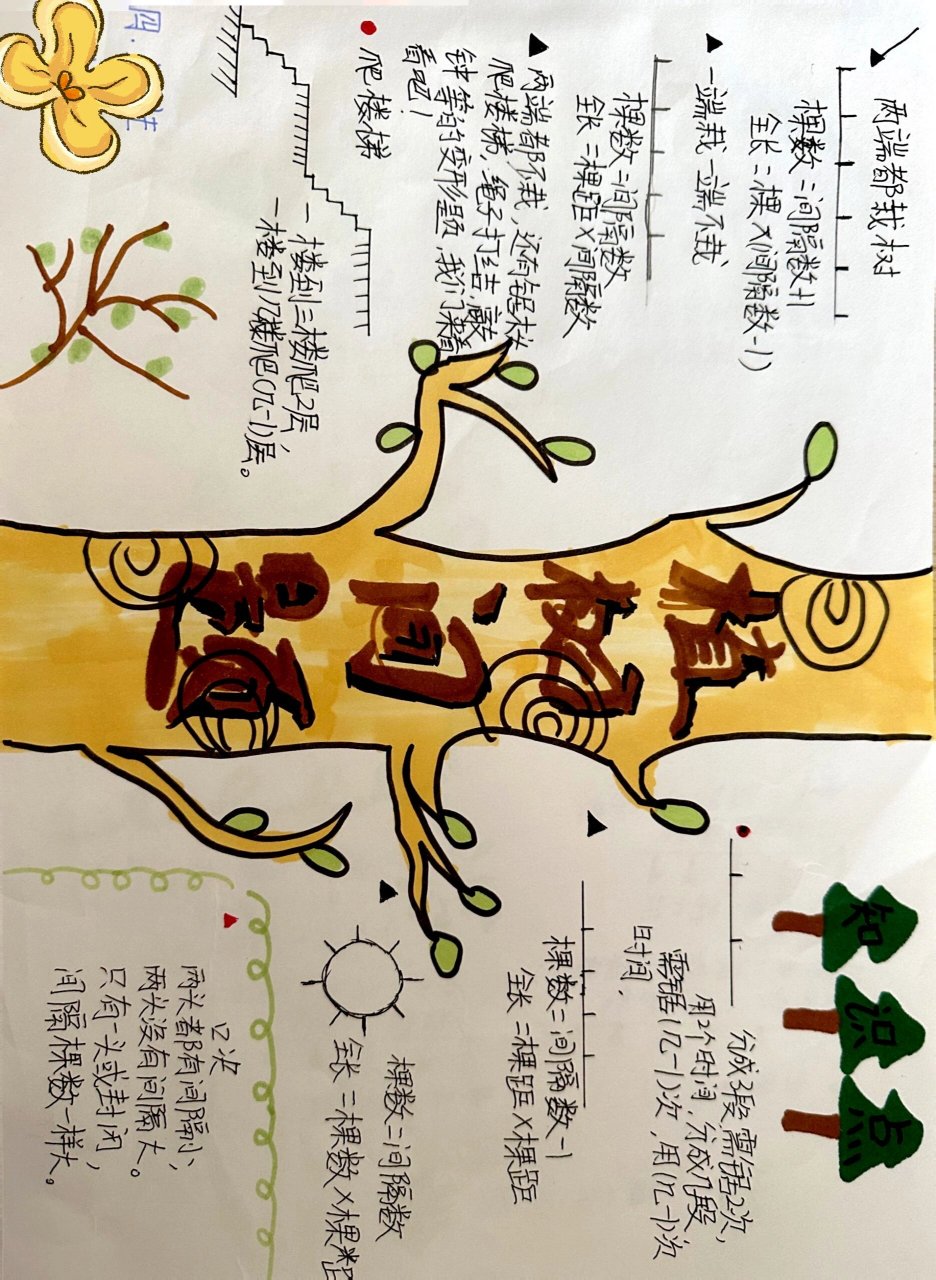 两端都栽树
棵数=间隔数+1
全长=棵×(间隔数-1)
一端栽一端不栽
棵数=间隔数
全长=棵距×间隔数
两端都不栽,还有锯木
爬楼梯,绳子打结,敲
钟等的变形题,我们来瞧
看吧!
爬楼梯
一楼到三楼爬2层,
一楼到几楼爬(几-1)层。
植树问题
知识点
分成3段,需锯2次,
用2个时间,分成几段
需锯(几-1)次,用(几-1)次
时间,
棵数=间隔数-1
全长=棵距×棵距
棵数=间隔数
全长=棵数×棵距
口决
两头都有间隔小,
两头没有间隔大。
只有一头或封闭,
间隔棵数一样大。